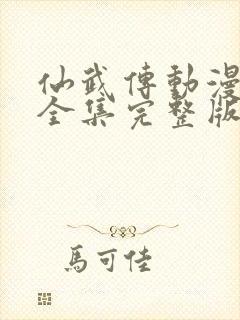 仙武傳動漫
全集完整版
馬可佳